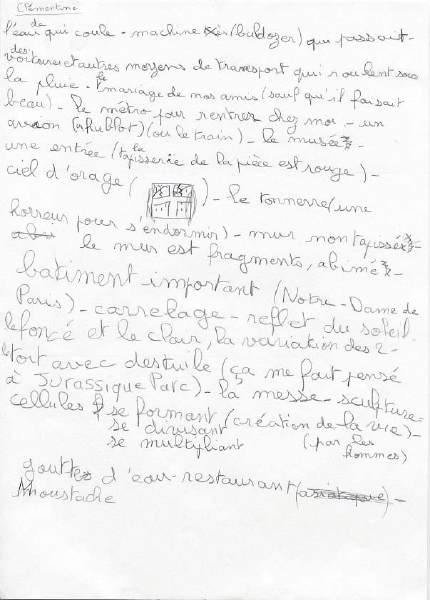 Clémentine
de l'eau qui coule - machine (buldozer) qui passait -
des voitures et autres moyens de transport qui roulent sous
la pluie - le mariage de nos amis (sauf qu'il faisait
beau) - le métro pour rentrer chez moi - un
avion (hublot) (ou le train) - le musée -
une entrée (la tapisserie de la pièce est rouge) -
ciel d'orage ( ) - le tonnerre (une
horreur pour s'endormir) - mur non tapissé -
le mur est fragments, abimé -
batiment important (Notre-Dame de
Paris) - carrelage - reflet du soleil -
le foncé et le clair, la variation des 2 -
toit avec des tuile (ça me fait pensé
à Jurassique Parc) - la messe - sculpture -
cellules se formant (création de la vie) -
se divisant (par les
se multipliant hommes)
goutte d'eau - restaurant (asiatique) -
Moustache